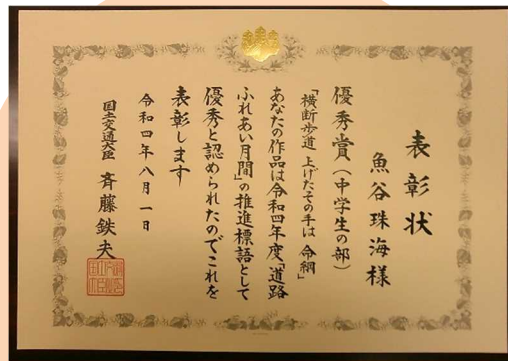 表彰状
魚谷珠海様
優秀賞(中学生の部)
「横断歩道 上げたその手は 命綱」
あなたの作品は令和四年度「道路
ふれあい月間」の推進標語として
優秀と認められたのでこれを
表彰します
令和四年八月一日
国土交通大臣 斉藤鉄夫